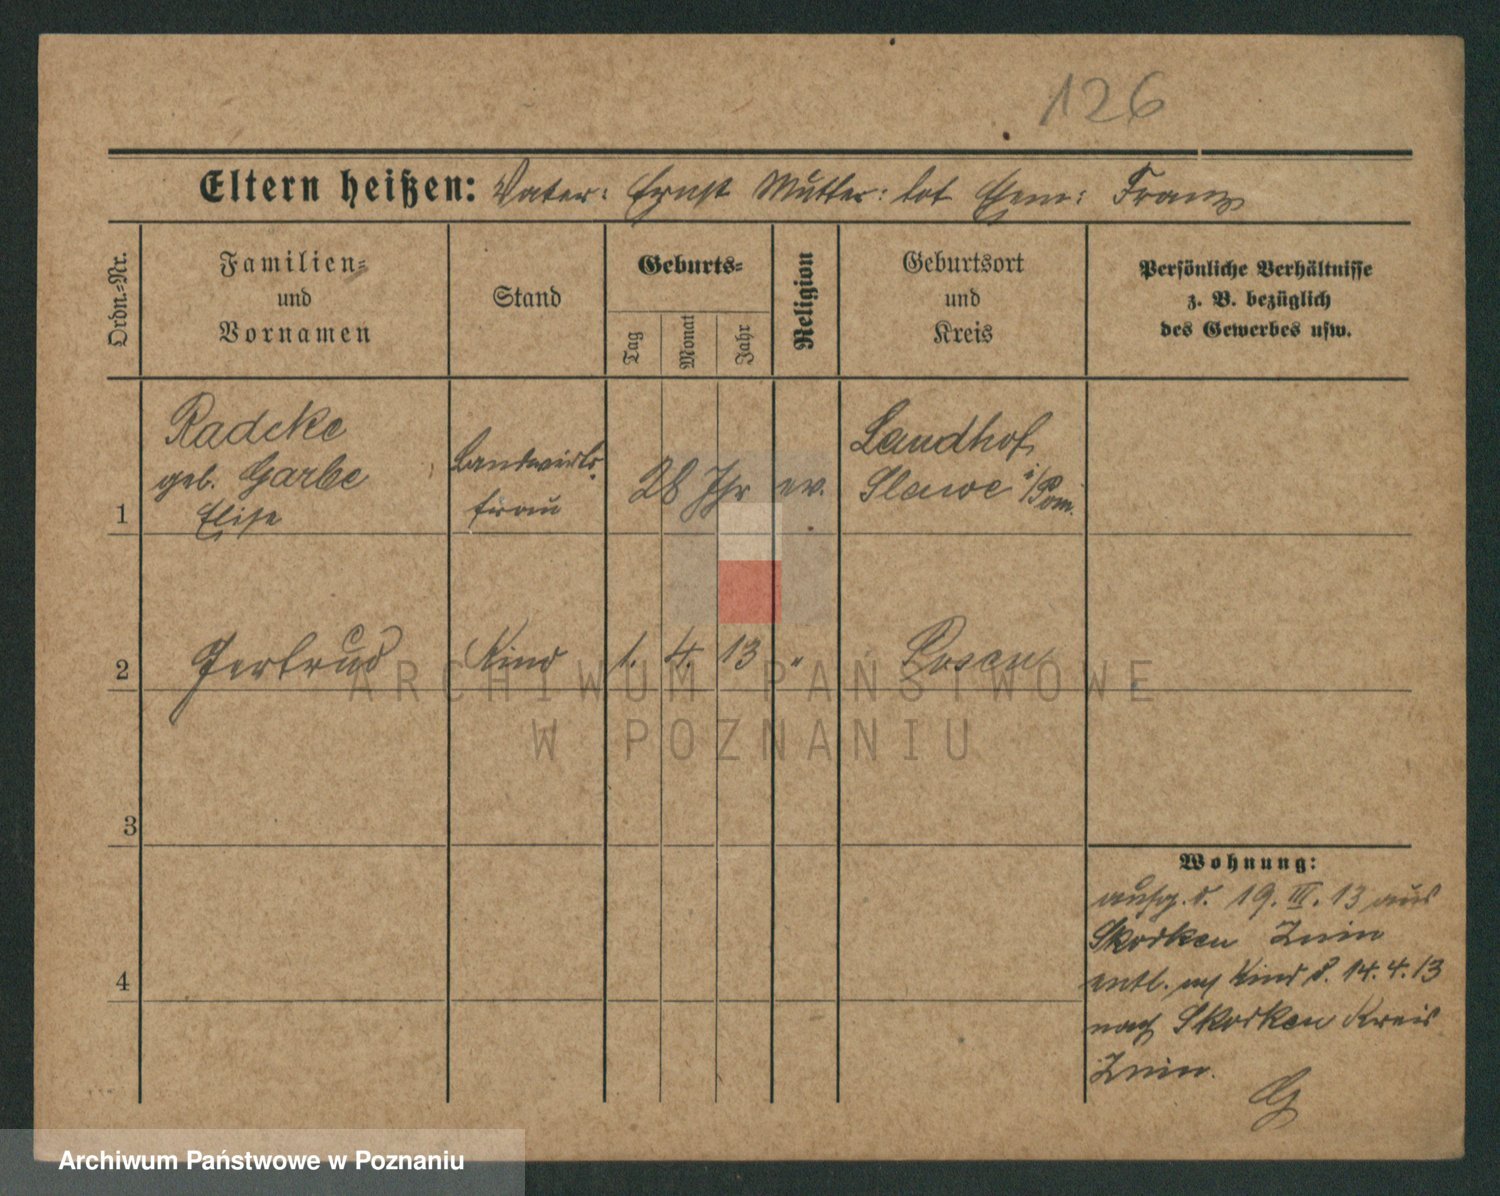 126
Eltern heißen: Vater: Ernst Mutter: tot Ehem: Franz
Ordn.-Nr.
Familien-
und
Vornamen
Stand
Geburts-
Tag
Monat
Jahr
Religion
Geburtsort
und
Kreis
Persönliche Verhältnisse
z. B. bezüglich
des Gewerbes usw.
1
Radcke
geb. Garbe
Elise
Landwirts-
frau
28 Jhr
ev.
Landhof
Slawe i/Pom.
2
Gertrud
Kind
1. 4. 13
"
Posen
ARCHIWUM PAŃSTWOWE
W POZNANIU
3
4
Wohnung:
aufg. d. 19. III. 13 aus
Skorken Znin
entl. Kind d. 14.4.13
nach Skorken Kreis
Znin.
Archiwum Państwowe w Poznaniu